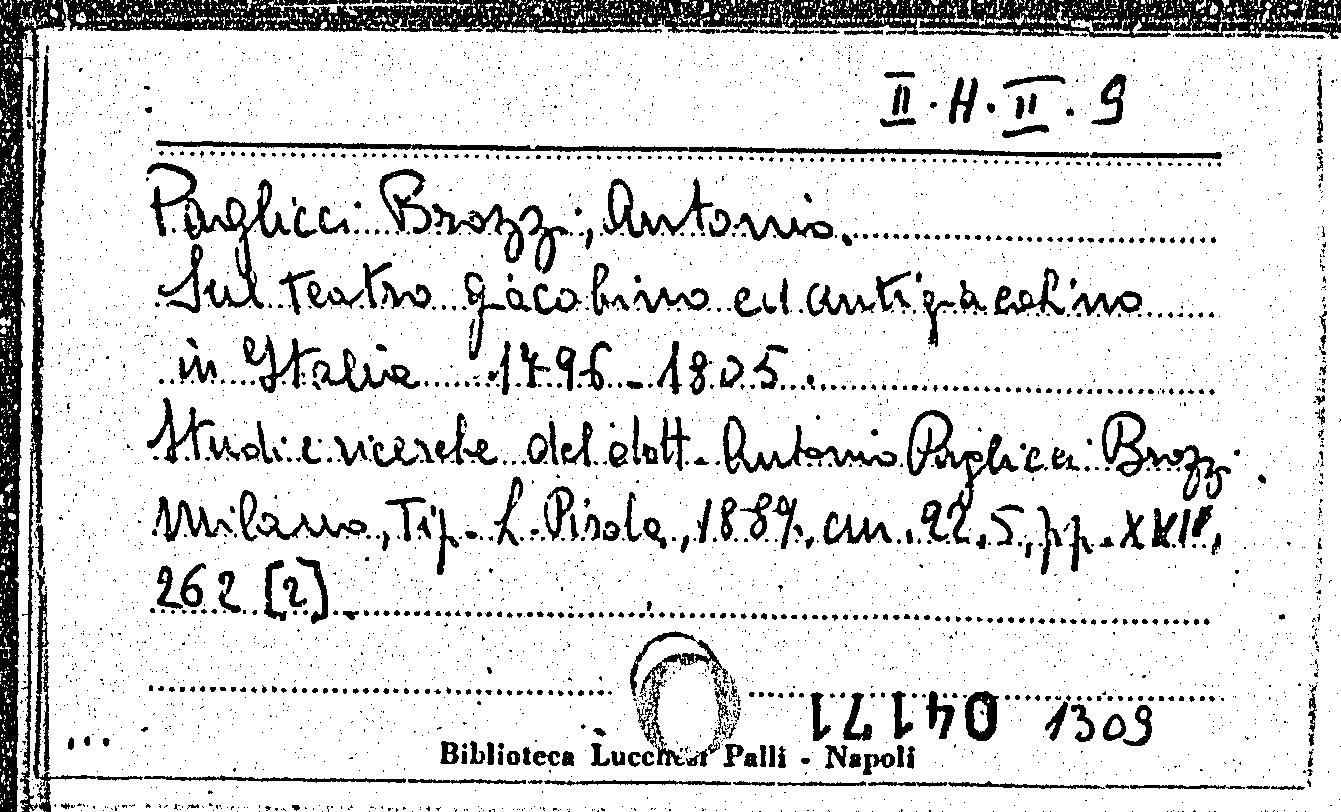 II.H.II.9
Paglicci Brozzi, Antonio.
Sul teatro giacobino ed antigiacobino
in Italia 1796-1805.
Studi e ricerche del dott. Antonio Paglicci Brozzi.
Milano, Tip. L. Pirola, 1887, cm. 22,5, pp.
262 [2].
04171 1309
Biblioteca Lucchesi Palli - Napoli